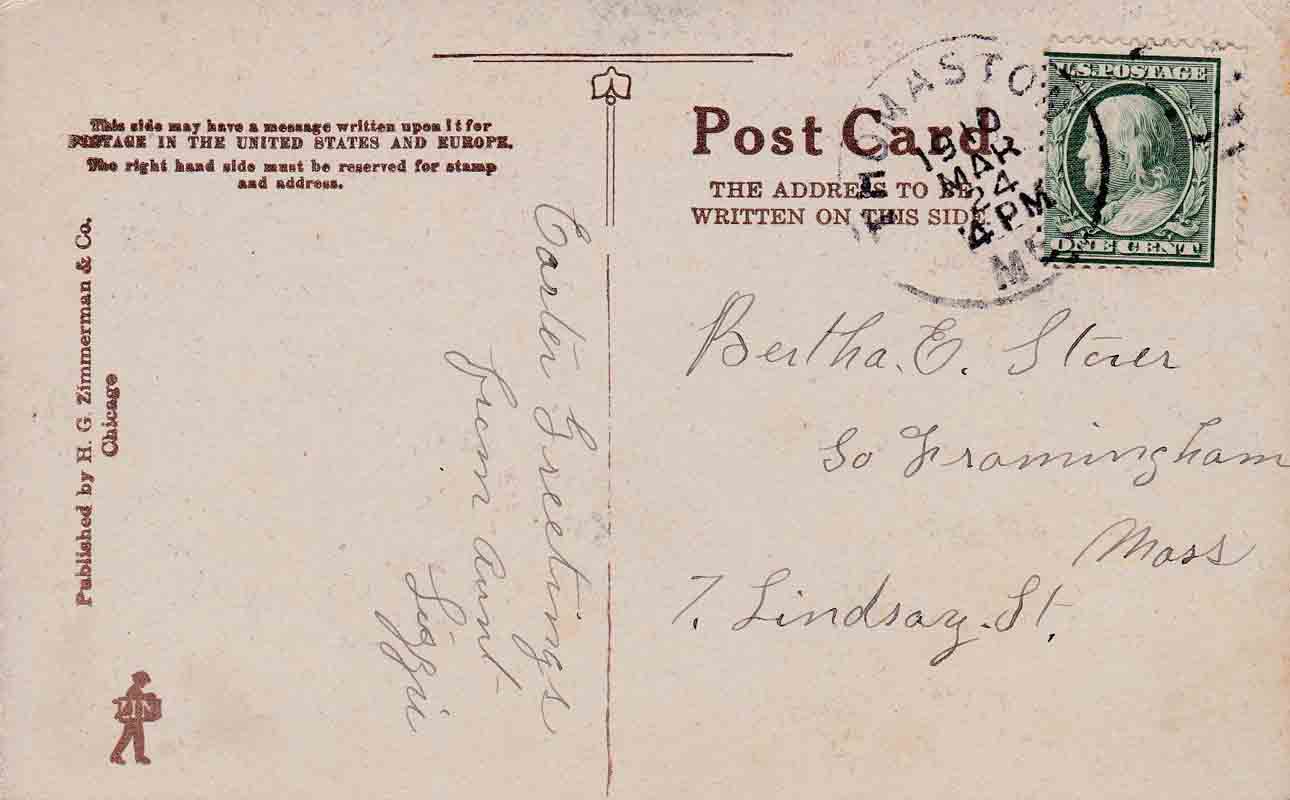 This side may have a message written upon it for
POSTAGE IN THE UNITED STATES AND EUROPE.
The right hand side must be reserved for stamp
and address.
Published by H. G. Zimmerman & Co.
Chicago
ZIM
Easter Greetings
from Aunt
Lizzie
Post Card
THE ADDRESS TO BE
WRITTEN ON THIS SIDE
THOMASTON
1910
MAR
24
4 PM
ME.
U.S. POSTAGE
ONE CENT
Bertha. E. Storer
So Framingham
Mass
7. Lindsay. St.